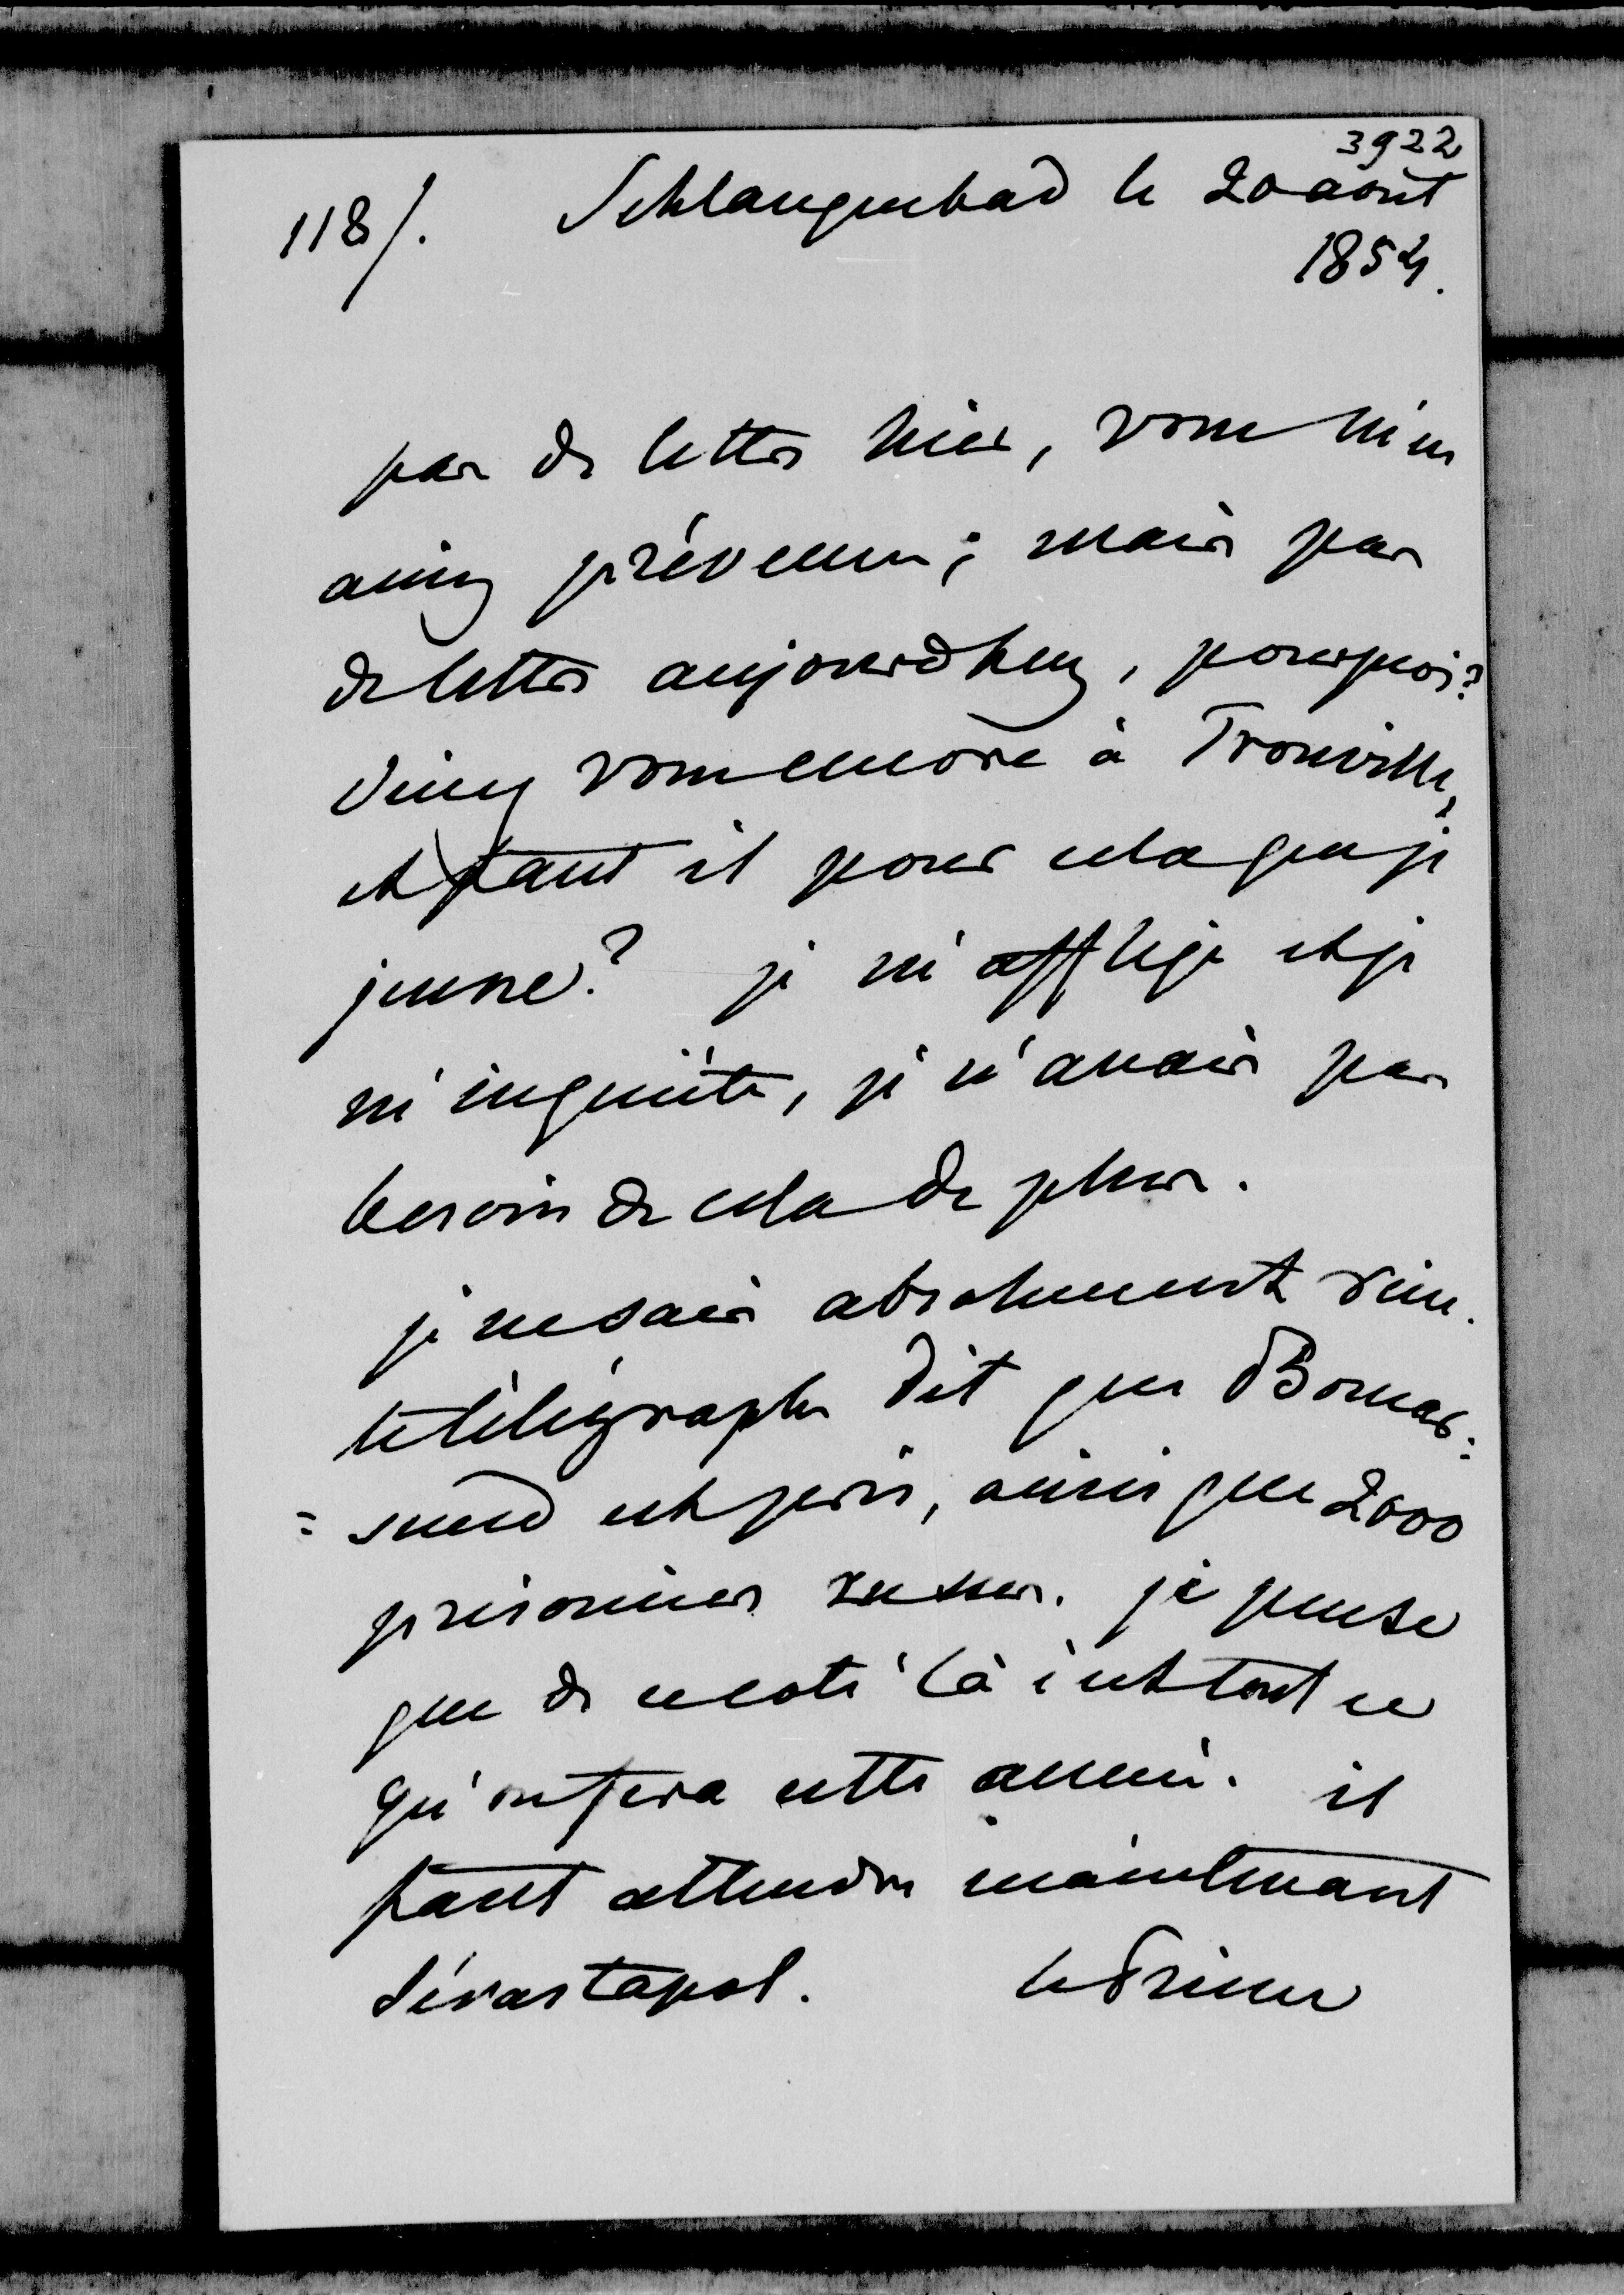 3922
118/. Schlangenbad le 20 août
1854.
pas de lettres hier, vous m'en
aviez prévenue; mais pas
de lettres aujourd'huy, pourquoi?
diney vous encore à Trouville,
et faut il pour cela que je
jeune? je m'afflige et je
m'inquiète, je n'avais pas
besoin de cela de plus.
je ne sais absolument rien.
le télégraphe dit que Bomar=
=sund est pris, ainsi que 2000
prisonniers russes. je pense
que de ce coté là c'est tout ce
qu'on fera cette année. il
faut attendre maintenant
Sévastapol. le Prince